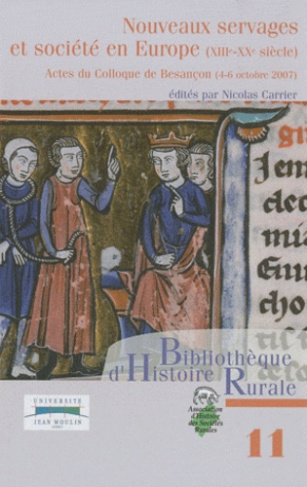 Nouveaux servages
et société en Europe (XIIIe-XVe siècle)
Actes du Colloque de Besançon (4-6 octobre 2007)
édités par Nicolas Carrier
Bibliothèque
d'Histoire
Rurale
UNIVERSITE
JEAN MOULIN
Association
d'Histoire
des Sociétés
Rurales
11